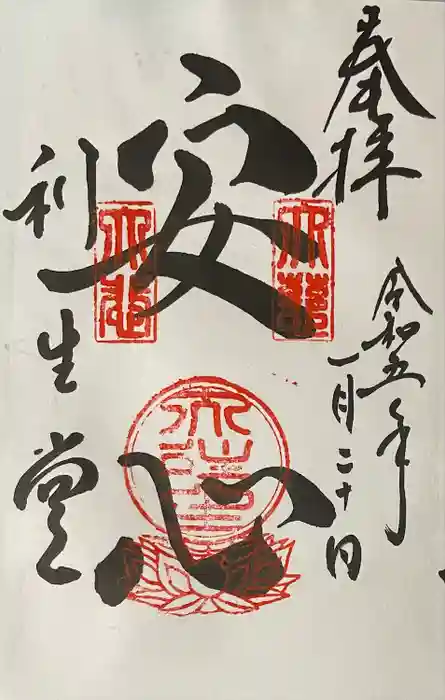 奉拝
令和五年
一月二十日
安心
利生堂